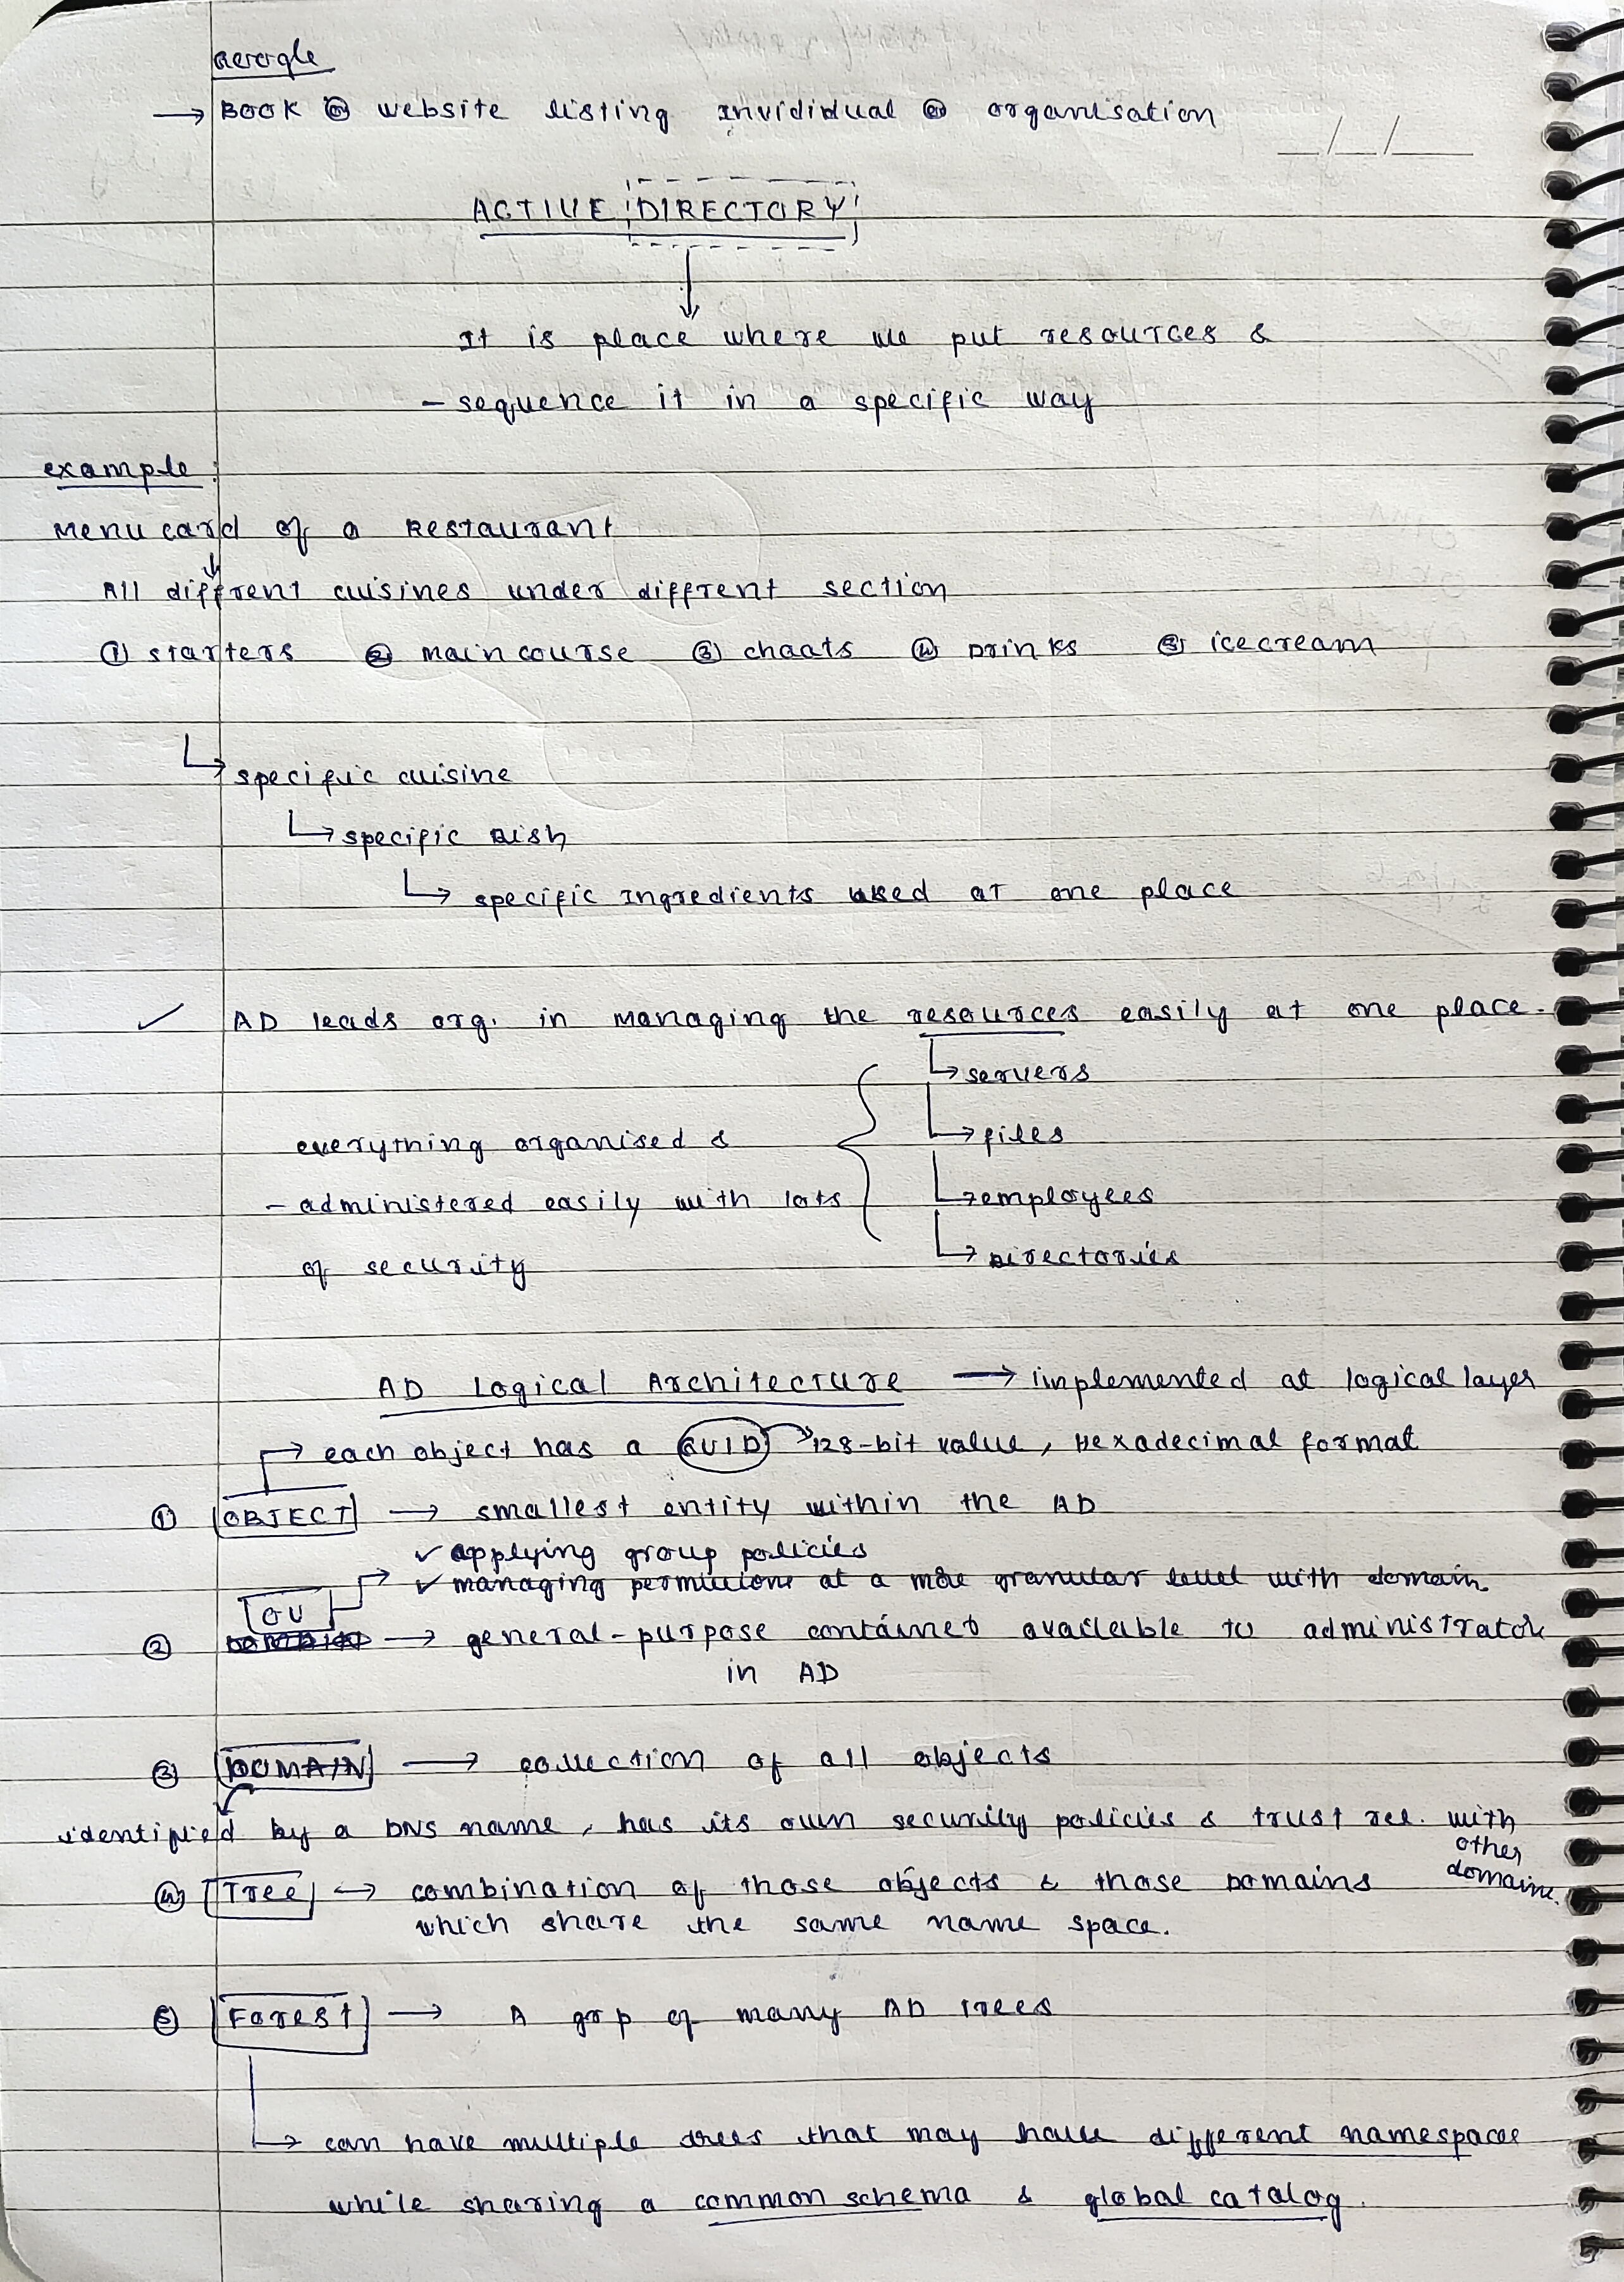 Google
→ BOOK or website listing Invididual or organisation
__/__/____
ACTIVE DIRECTORY
It is place where we put resources &
- sequence it in a specific way
example:
Menu card of a Restaurant
All diffrent cuisines under diffrent section
① starters ② main course ③ chaats ④ Drinks ⑤ icecream
↳ specific cuisine
↳ specific Dish
↳ specific Ingredients used at one place
✓ AD leads org. in managing the resources easily at one place.
↳ servers
↳ files
everything organised &
↳ employees
- administered easily with lots
↳ Directories
of security
AD Logical Architecture → implemented at logical layer
→ each object has a GUID → 128-bit value, Hexadecimal format
① OBJECT → smallest entity within the AD
✓ applying group policies
✓ managing permissions at a more granular level with domain.
OU
② → general-purpose container available to administrator
in AD
③ DOMAIN → collection of all objects
identified by a DNS name, has its own security policies & trust rel. with
other
domains.
④ Tree → combination of those objects & those Domains
which share the same name space.
⑤ Forest → A grp of many AD trees
↳ can have multiple trees that may have different namespaces
while sharing a common schema & global catalog.